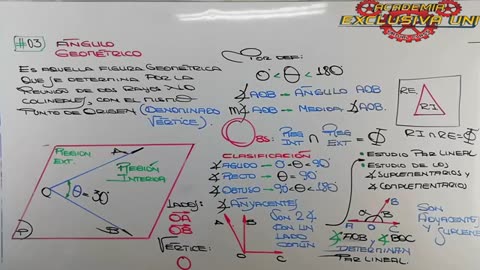 ACADEMIA
EXCLUSIVA UNI
#03 ÁNGULO
GEOMÉTRICO
ES AQUELLA FIGURA GEOMÉTRICA
QUE SE DETERMINA POR LA
REUNIÓN DE DOS RAYOS NO
COLINEALES, CON EL MISMO
PUNTO DE ORIGEN (DENOMINADO
VÉRTICE).
REGIÓN
EXT.
A
REGIÓN
INTERIOR
O
θ = 30°
B
P
LADOS:
OA
OB
VÉRTICE:
O
POR DEF:
0° < θ < 180°
∡AOB → ÁNGULO AOB
m∡AOB → MEDIDA ∡AOB.
OBS: REG INT ∩ REG EXT = Φ
CLASIFICACIÓN
∡AGUDO → 0° < θ < 90°
∡RECTO → θ = 90°
∡OBTUSO → 90° < θ < 180°
∡ADYACENTES
A
B
O
C
SON 2∡
CON UN
LADO
COMÚN
RE
RI
RI ∩ RE = Φ
• ESTUDIO PAR LINEAL
• ESTUDIO DE LOS
∡SUPLEMENTARIOS Y
∡COMPLEMENTARIOS
B
A O C
∡AOB ∡BOC
DETERMINAN
PAR LINEAL.
SON
ADYACENTES
Y SUPLEM